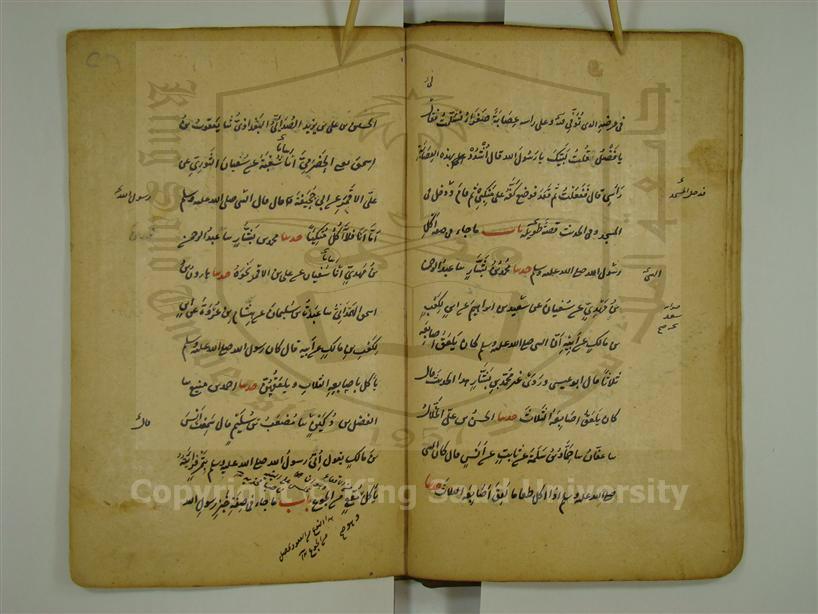 في مرضه الذي توفي فيه وعلى راسه عصابة صفراء فسلمت فقال
يا فضل قلت لبيك يا رسول الله قال اشدد بهذه العصابة
راسي قال ففعلت ثم قعد فوضع كفه على منكبي ثم قام ودخل في
المسجد وفي الحديث قصة طويلة باب ما جاء في صفة اكل
رسول الله صلى الله عليه وسلم حدثنا محمد بن بشار نا عبد الرحمن
بن مهدي عن سفيان عن سعيد بن ابراهيم عن ابن لكعب
بن مالك عن ابيه ان النبي صلى الله عليه وسلم كان يلعق اصابعه
ثلاثا قال ابو عيسى وروى غير محمد بن بشار هذا الحديث قال
كان يلعق اصابعه الثلاث حدثنا الحسن بن علي الخلال
نا عفان نا حماد بن سلمة عن ثابت عن انس قال كان النبي
صلى الله عليه وسلم اذا اكل طعاما لعق اصابعه الثلاث حدثنا
النبي
الحسين بن علي بن يزيد الصدائي البغدادي نا يعقوب بن
اسحق يعني الحضرمي انا شعبة عن سفيان الثوري عن
علي بن الاقمر عن ابي جحيفة قال قال النبي صلى الله عليه وسلم
اما انا فلا اكل متكئا حدثنا محمد بن بشار نا عبد الرحمن
بن مهدي انا سفيان عن علي بن الاقمر نحوه حدثنا هارون بن
اسحق الهمداني نا عبدة بن سليمان عن هشام بن عروة عن ابن
لكعب بن مالك عن ابيه قال كان رسول الله صلى الله عليه وسلم
ياكل باصابعه الثلاث ويلعقهن حدثنا احمد بن منيع نا
الفضل بن دكين نا مصعب بن سليم قال سمعت انس
بن مالك يقول اتي رسول الله صلى الله عليه وسلم بتمر فرايته
ياكل وهو مقع من الجوع باب ما جاء في صفة خبز رسول الله
رسول الله
قال
Copyright © King Saud University
King Saud University
1957